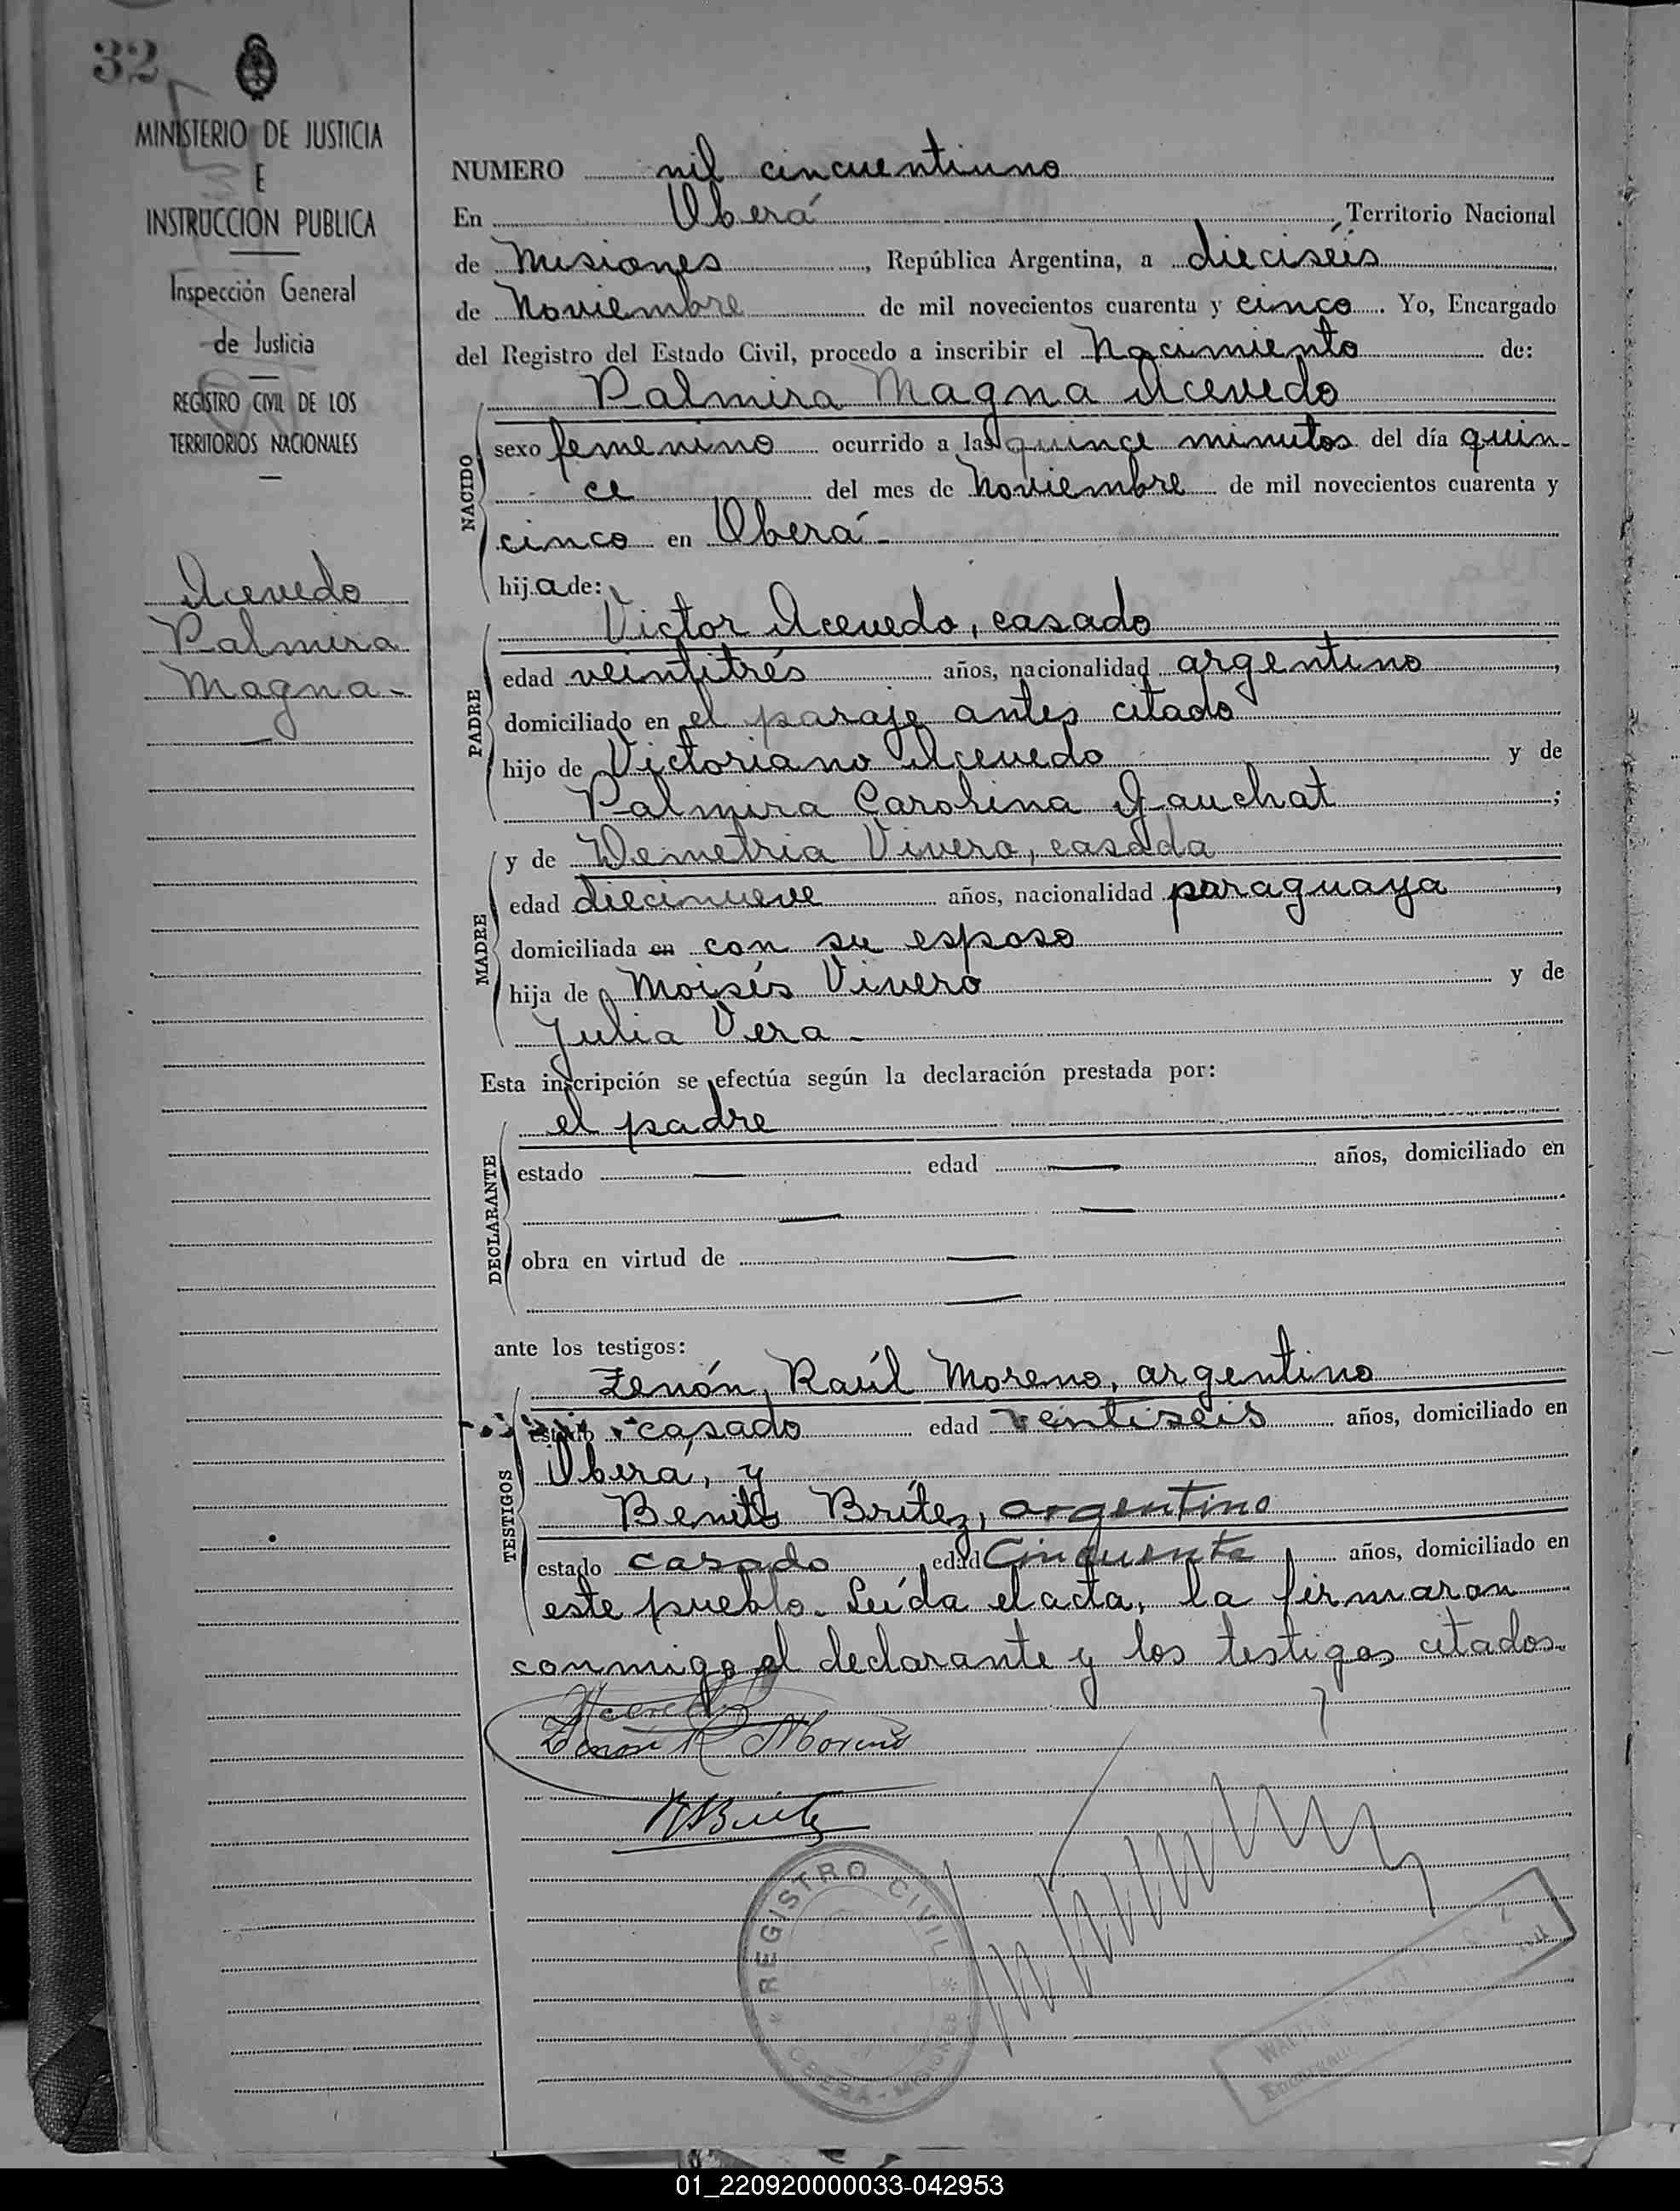 32
MINISTERIO DE JUSTICIA
E
INSTRUCCION PUBLICA
Inspección General
de Justicia
REGISTRO CIVIL DE LOS
TERRITORIOS NACIONALES
Acevedo
Palmira
Magna-
NUMERO mil cincuentiuno
En Oberá, Territorio Nacional
de Misiones, República Argentina, a dieciséis
de Noviembre de mil novecientos cuarenta y cinco. Yo, Encargado
del Registro del Estado Civil, procedo a inscribir el Nacimiento de:
Palmira Magna Acevedo
NACIDO
sexo femenino ocurrido a las quince minutos del día quin-
ce del mes de Noviembre de mil novecientos cuarenta y
cinco en Oberá-
hija de:
PADRE
Victor Acevedo, casado
edad veintitrés años, nacionalidad argentino,
domiciliado en el paraje antes citado
hijo de Victoriano Acevedo y de
Palmira Carolina Gauchat;
MADRE
y de Demetria Vivero, casada
edad diecinueve años, nacionalidad paraguaya,
domiciliada en con su esposo
hija de Moisés Vivero y de
Julia Vera-
Esta inscripción se efectúa según la declaración prestada por:
DECLARANTE
el padre
estado — edad — años, domiciliado en
— —
obra en virtud de —
—
ante los testigos:
TESTIGOS
Zenón, Raúl Moreno, argentino
estado casado edad veintiseis años, domiciliado en
Oberá, y
Benito Brítez, argentino
estado casado, edad Cincuenta años, domiciliado en
este pueblo. Leída el acta, la firmaron
conmigo el declarante y los testigos citados.
Acevedo
Zenón R Moreno
B Britez
REGISTRO CIVIL
OBERA - MISIONES
01_220920000033-042953